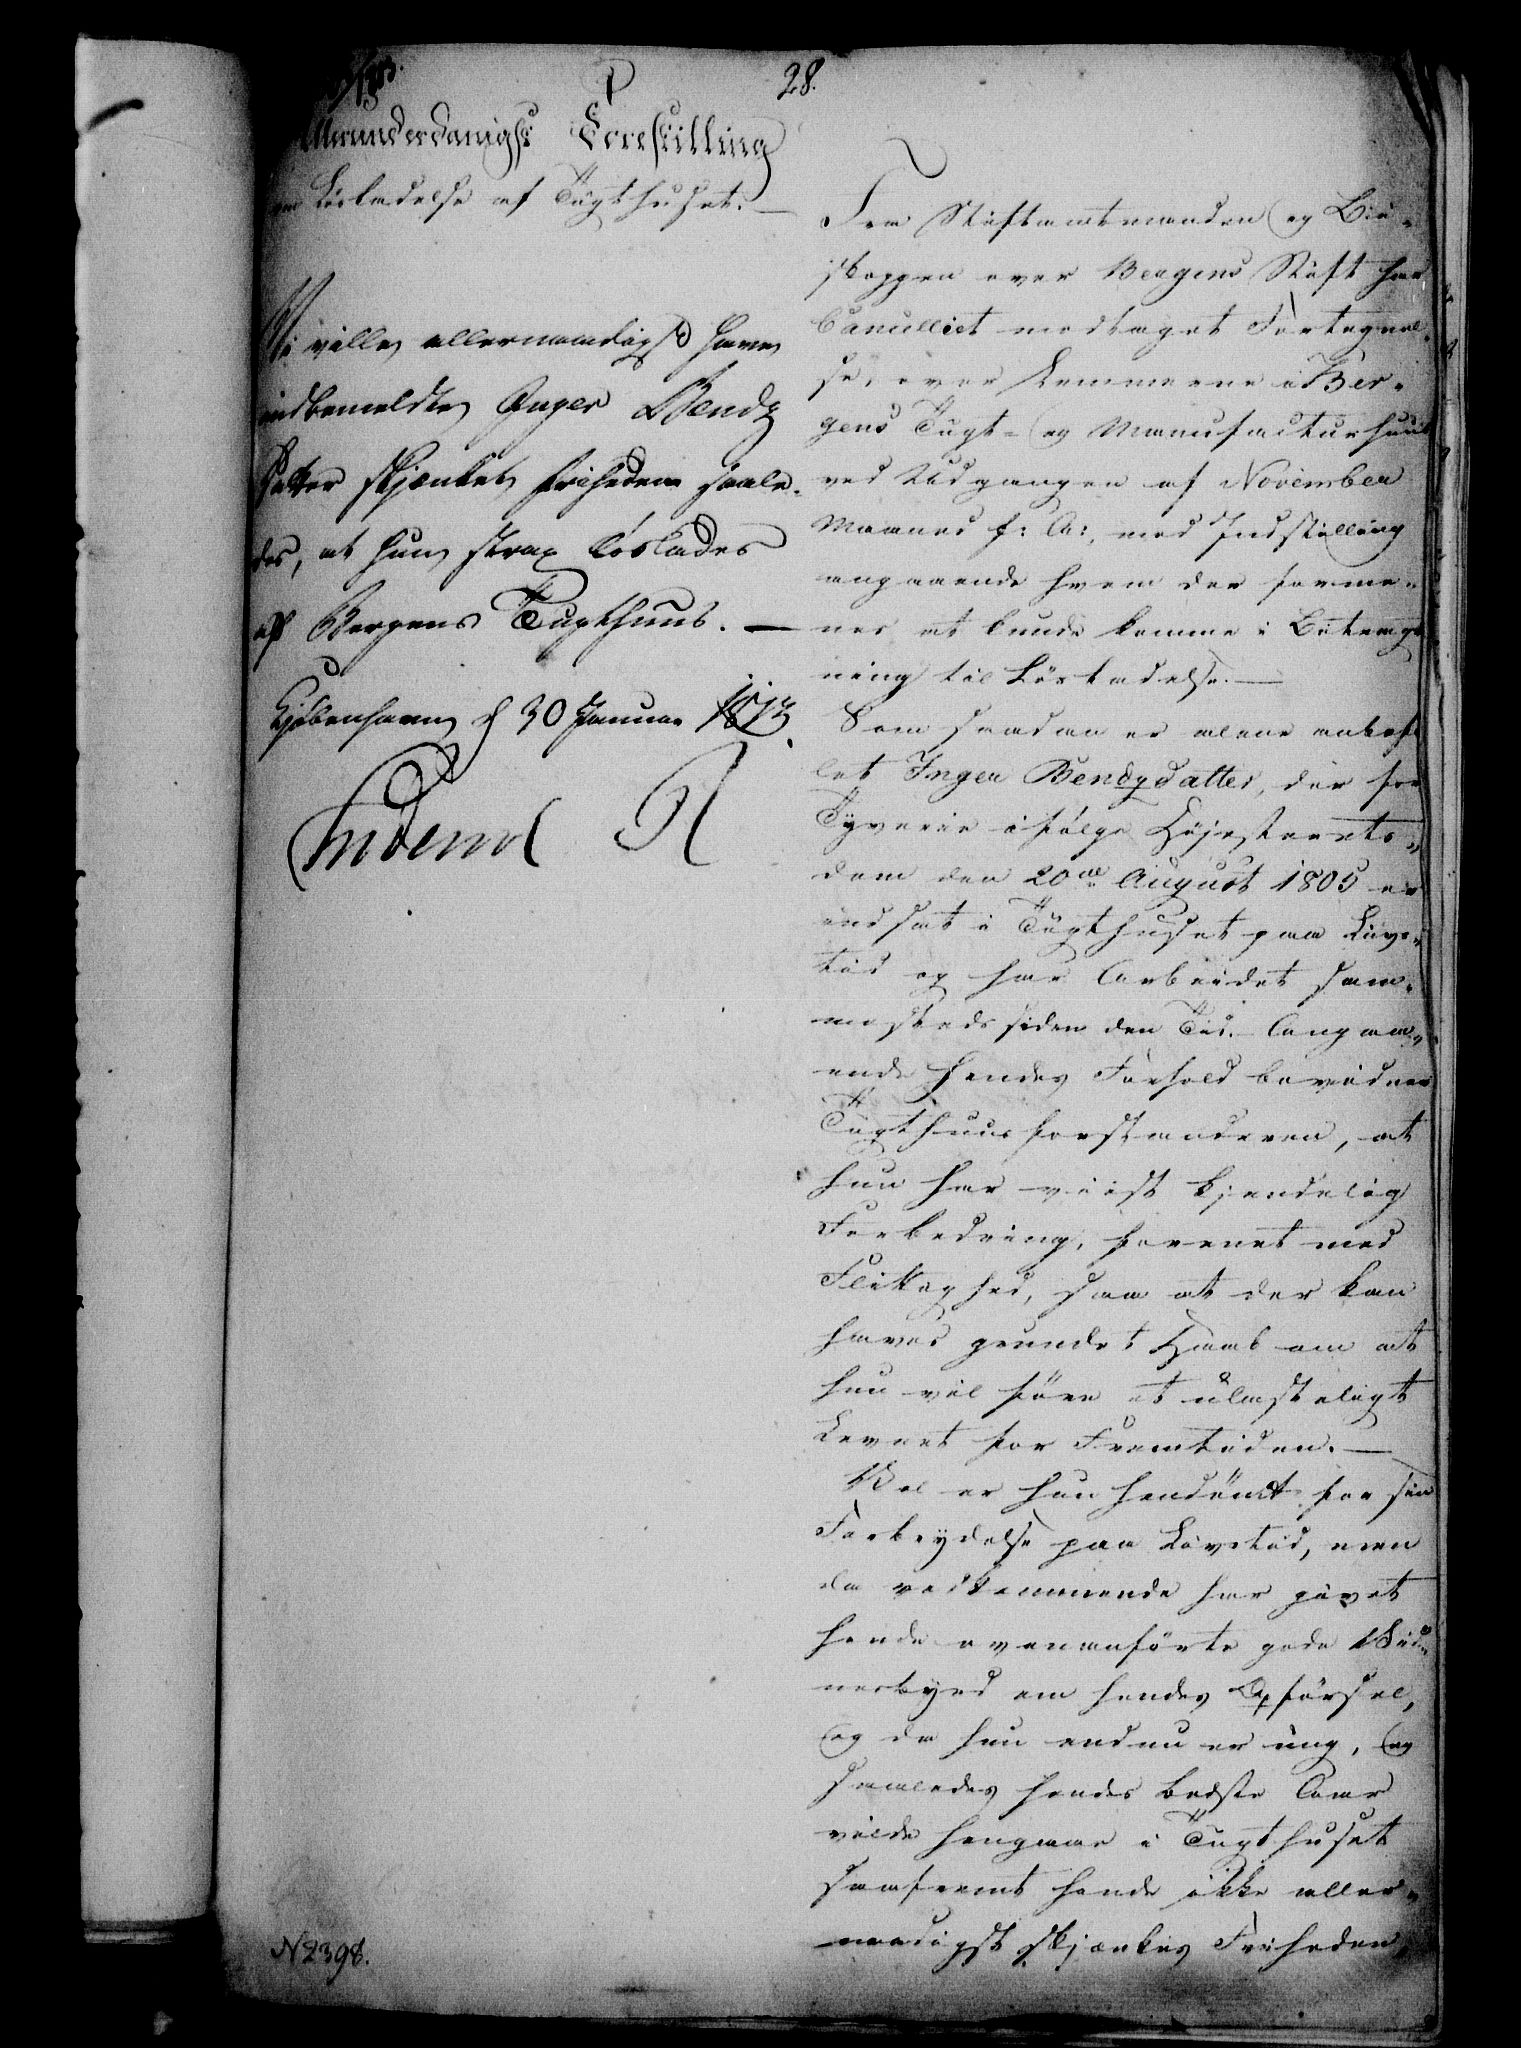 28.
Allerunderdanigst Forestilling
om Løsladelse af Tugthuset. —
Vi ville allernaadigst have
indbemeldte Inger Bendz
datter skjænket Friheden saale-
des, at hun strax løslades
af Bergens Tugthuus. —
Kjøbenhavn d 30 Januar 1813.
Frideric R
N 2398.
Fra Stiftamtmanden og Bi-
skoppen over Bergens Stift har
Cancelliet modtaget Fortegnel-
se, over Lemmerne i Ber-
gens Tugt- og Manufacturhuus
ved Udgangen af November
Maaned f: A:, med Indstilling
angaaende hvem der forme-
nes at kunde komme i Betragt-
ning til Løsladelse. —
Som saadan er alene anbefa-
let Inger Bendzdatter, der for
Tyverie ifølge Højesterets-
dom den 20de August 1805 er
indsat i Tugthuset paa Livs-
tid og har Arbeidet sam-
mesteds siden den Tid. Angaa-
ende hendes Forhold bevidner
Tugthuusforstanderen, at
hun har viist kjendelig
Forbedring, forenet med
Flittighed, saa at der kan
haves grundet Haab om at
hun vil føre et ulasteligt
Levnet for Fremtiden. —
Vel er hun hendømt for sin
Forbrydelse paa Livstid, men
da vedkommende har givet
hende ovenanførte gode Vid-
nesbyrd om hendes Opførsel,
og da hun endnu er ung, og
saaledes hendes bedste Aar
vilde hengaae i Tugthuset
saafremt hende ikke aller-
naadigst skjænkes Friheden,